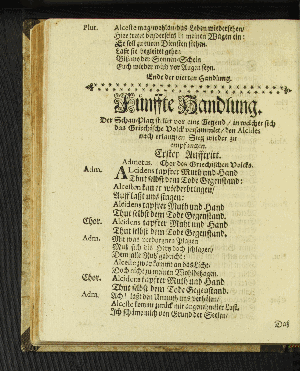 Plut. Alceste mag wohl an das Leben wiederkehren/
Hier trete beyderseits in meinen Wagen ein:
Er soll zu euren Diensten stehen.
Last sie begleitet gehen
Biß wo der Sonnen-Schein
Euch wieder wird vor Augen seyn.
Ende der vierten Handlung.
Fünffte Handlung.
Der Schau-Platz stellt vor eine Gegend / in welcher sich
das Griechische Volck versammlet / den Alcides
nach erlangten Sieg wieder zu
empfangen.
Erster Aufftritt.
Admetus. Chor des Griechischen Volcks.
Adm. Alcidens tapfrer Muth und Hand
Thut selbst dem Tode Gegenstand:
Alcesten kan er wiederbringen/
Auff last uns singen:
Alcidens tapfrer Muth und Hand
Thut selbst dem Tode Gegenstand.
Chor. Alcidens tapfrer Muth und Hand
Thut selbst dem Tode Gegenstand.
Adm. Was vor verborgne Plagen
Muß sich die
Dem alle Noth gebricht:
Alceste zwar kommt an das Licht/
Doch nicht zu meinen Wohlbehagen.
Chor. Alcidens tapfrer Muth und Hand
Thut selbst dem Tode Gegenstand.
Adm. Ach! last den Unmuth uns verhölen/
Alceste komm zurück mit angenehmer Last.
Ich schäme mich von Grund der Seelen/
Daß